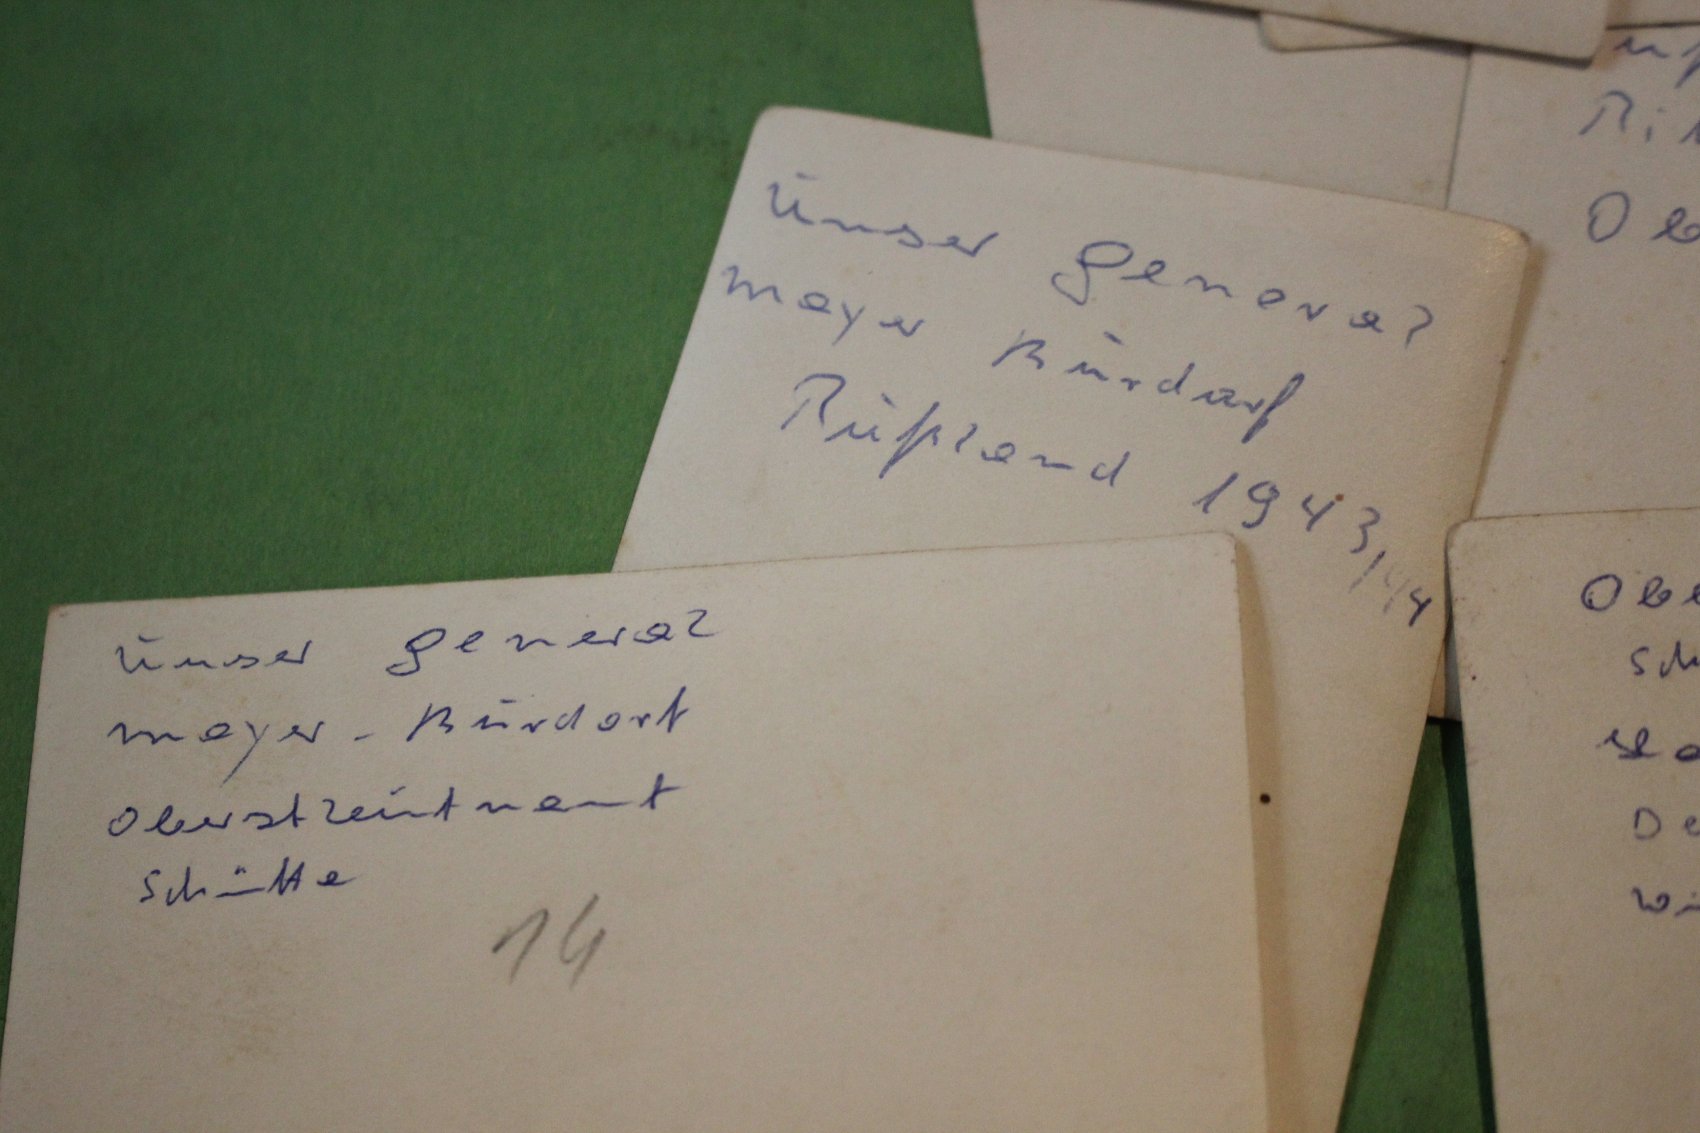 Unser General
Mayer Burdorf
Rußland 1943/44
Unser General
Mayer - Burdorf
Oberstleutnant
Schütte
14
Ri
Ob
Obe
Sch
De
Wi